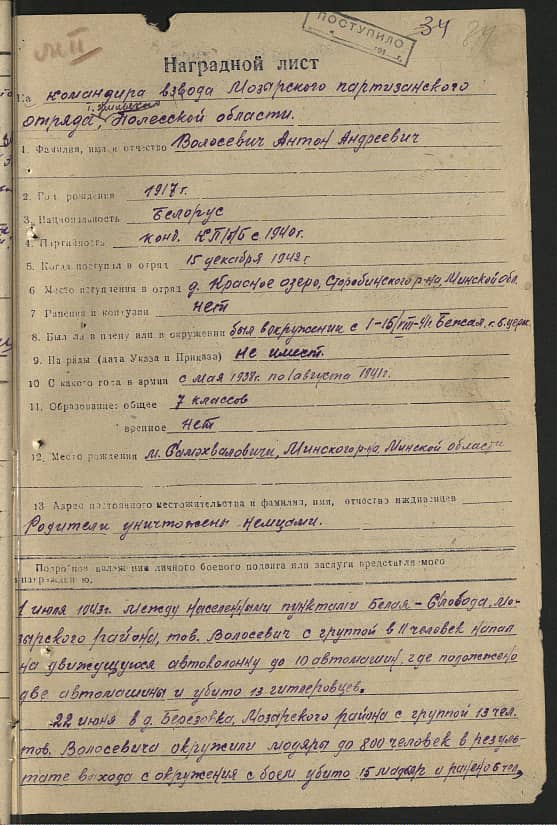 ПОСТУПИЛО
34
Наградной лист
На командира взвода Мозырского партизанского
отряда, Полесской области.
1. Фамилия, имя и отчество Волосевич Антон Андреевич
2. Год рождения 1917 г.
3. Национальность Белорус
4. Партийность канд. КП/б/Б с 1940 г.
5. Когда поступил в отряд 15 декабря 1942 г
6 Место поступления в отряд д. Красное озеро, Старобинского р-на, Минской обл.
7 Ранения и контузии нет
8. Был ли в плену или в окружении был в окружении с 1-15/VIII-41г
9. Награды (дата Указа и Приказа) не имеет.
10 С какого года в армии с мая 1938г. по 1 августа 1941г.
11. Образование: общее 7 классов
военное нет
12. Место рождения м. Самохваловичи, Минского р-на, Минской области
13 Адрес постоянного местожительства и фамилия, имя, отчество иждивенцев
Родители уничтожены немцами.
Подробное изложение личного боевого подвига или заслуги представляемого
к награждению.
1 июля 1943г. между населенными пунктами Белая-Слобода, Мо-
зырского района, тов. Волосевич с группой в 11 человек напал
на движущуюся автоколонну до 10 автомашин, где подожжено
две автомашины и убито 13 гитлеровцев.
22 июня в д. Березовка, Мозарского района с группой 13 чел.
тов. Волосевича окружили мадяры до 800 человек в резуль-
тате выхода с окружения с боем убито 15 мадьяр и ранено 6 чел,